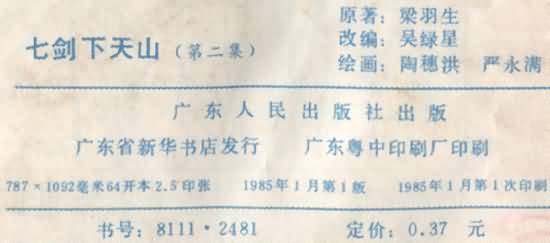 七剑下天山（第二集）
原著：梁羽生
改编：吴绿星
绘画：陶穗洪 严永满
广东人民出版社出版
广东省新华书店发行 广东粤中印刷厂印刷
787×1092毫米64开本2.5印张 1985年1月第1版 1985年1月第1次印刷
书号：8111·2481 定价：0.37 元